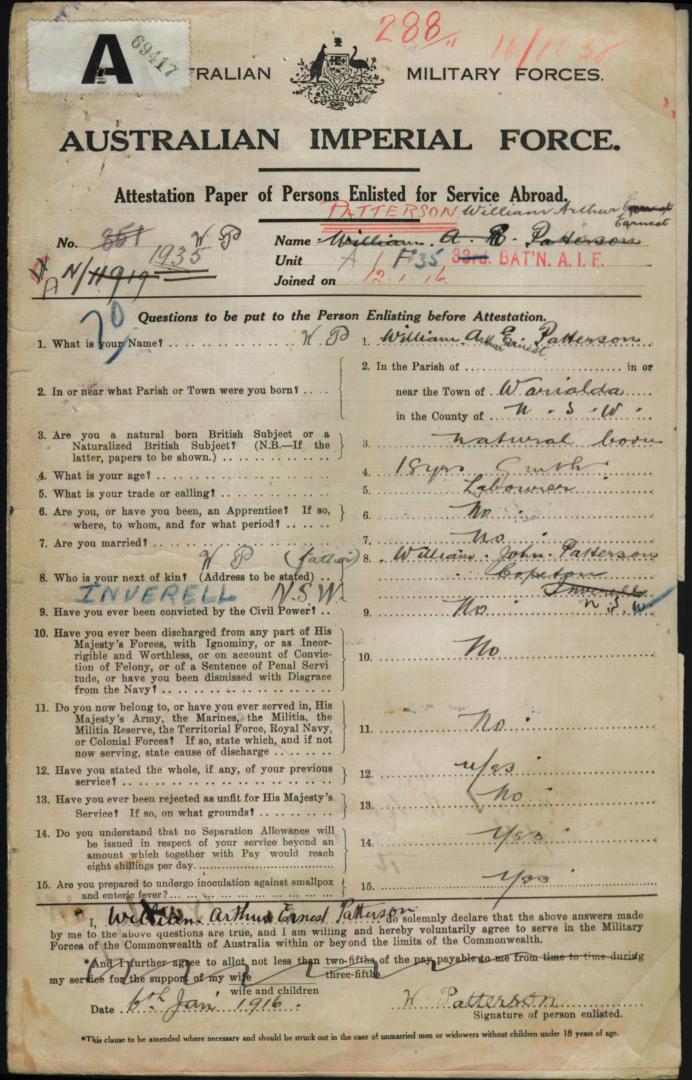 288
A 69417
AUSTRALIAN MILITARY FORCES.
AUSTRALIAN IMPERIAL FORCE.
Attestation Paper of Persons Enlisted for Service Abroad.
PATTERSON William Arthur Earnest
No. 351 1935 W P Name William A. E. Patterson
Unit A / F35 33rd. BAT'N. A.I.F.
Joined on 12.1.16.
Questions to be put to the Person Enlisting before Attestation.
1. What is your Name? W P 1. William Arthur Ernest Patterson
2. In or near what Parish or Town were you born? 2. In the Parish of in or
near the Town of Warialda
in the County of N. S. W.
3. Are you a natural born British Subject or a
Naturalized British Subject? (N.B.—If the
latter, papers to be shown.) 3. natural born
4. What is your age? 4. 18yrs 6mth
5. What is your trade or calling? 5. Labourer
6. Are you, or have you been, an Apprentice? If so,
where, to whom, and for what period? 6. No
7. Are you married? 7. No
W P (father) 8. William John Patterson
8. Who is your next of kin? (Address to be stated) Copeton
INVERELL N.S.W. Inverell
N.S.W
9. Have you ever been convicted by the Civil Power? 9. No
10. Have you ever been discharged from any part of His
Majesty's Forces, with Ignominy, or as Incor-
rigible and Worthless, or on account of Convic-
tion of Felony, or of a Sentence of Penal Servi
tude, or have you been dismissed with Disgrace
from the Navy? 10. No
11. Do you now belong to, or have you ever served in, His
Majesty's Army, the Marines, the Militia, the
Militia Reserve, the Territorial Force, Royal Navy,
or Colonial Forces? If so, state which, and if not
now serving, state cause of discharge 11. No
12. Have you stated the whole, if any, of your previous
service? 12. yes
13. Have you ever been rejected as unfit for His Majesty's
Service? If so, on what grounds? 13. No
14. Do you understand that no Separation Allowance will
be issued in respect of your service beyond an
amount which together with Pay would reach
eight shillings per day. 14. yes
15. Are you prepared to undergo inoculation against smallpox
and enteric fever? 15. yes
I, William Arthur Ernest Patterson do solemnly declare that the above answers made
by me to the above questions are true, and I am willing and hereby voluntarily agree to serve in the Military
Forces of the Commonwealth of Australia within or beyond the limits of the Commonwealth.
*And I further agree to allot not less than two-fifths of the pay payable to me from time to time during
three-fifths
my service for the support of my wife
wife and children
Date 6th Jan 1916. W Patterson
Signature of person enlisted.
*This clause to be amended where necessary and should be struck out in the case of unmarried men or widowers without children under 18 years of age.